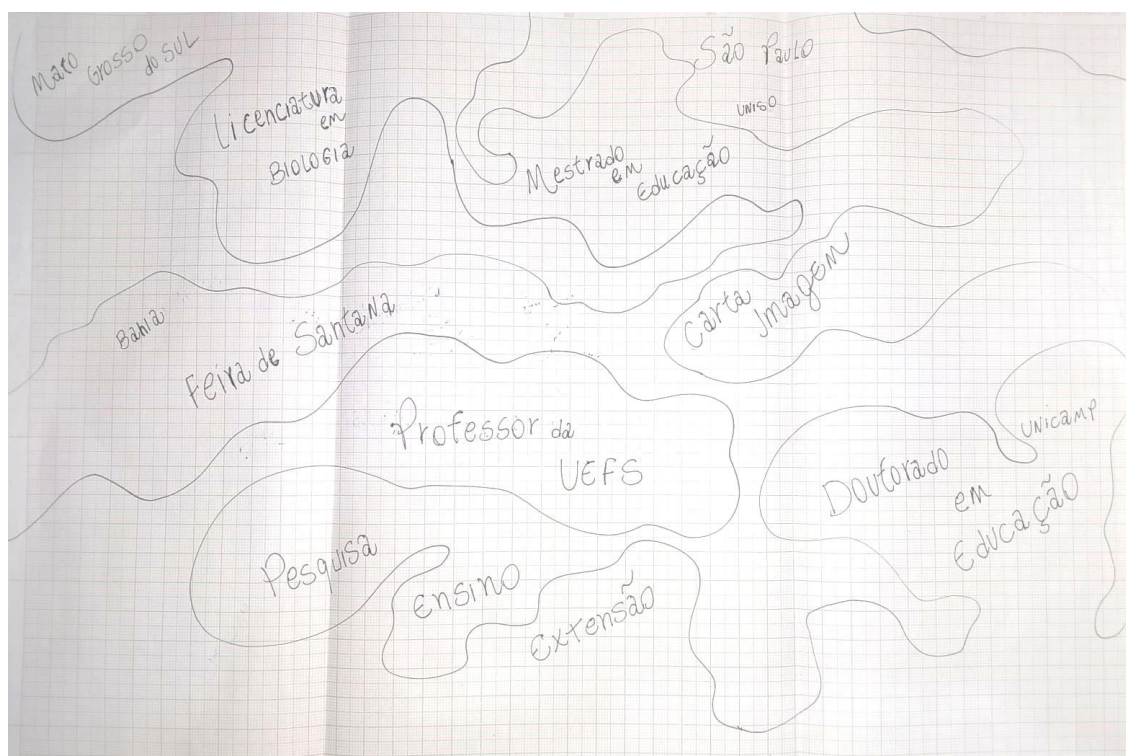 Mato
Grosso
do SUL
Licenciatura
em
BIOLOGIA
São Paulo
UNISO
Mestrado
em
Educação
Carta
Imagem
Bahia
Feira de Santana
Professor da
UEFS
UNicamp
Doutorado
em
Educação
Pesquisa
Ensino
Extensão